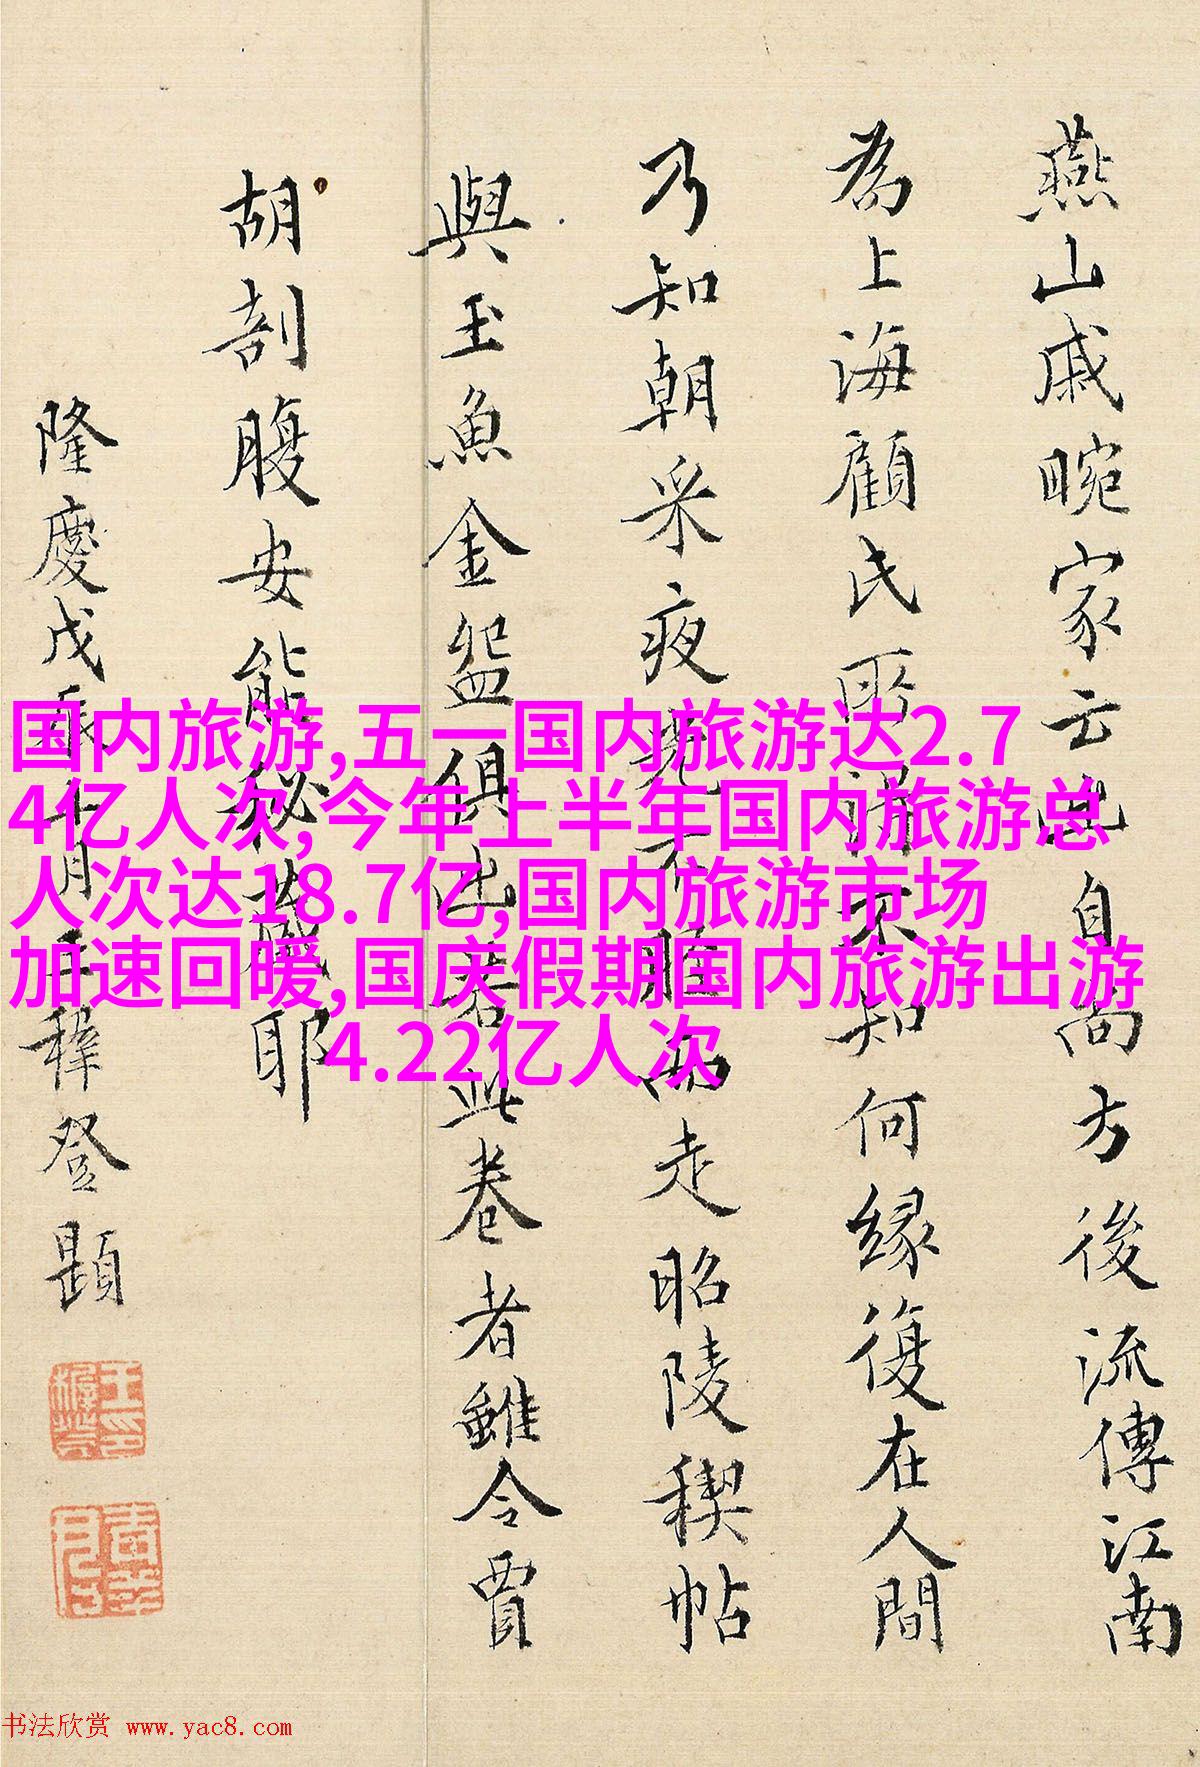 燕山戚畹家云此自尚方後流傳江南
為上海顧氏所不知何緣復在人間
乃知朝采夜光不脛而走昭陵稧帖
與玉魚金盌俱出若此卷者雖令賈
胡剖腹安能秘藏耶
隆慶戊辰月王穉登題
王印穉登
国内旅游,五一国内旅游达2.7
4亿人次,今年上半年国内旅游总
人次达18.7亿,国内旅游市场
加速回暖,国庆假期国内旅游出游
4.22亿人次
书法欣赏 www.yac8.com